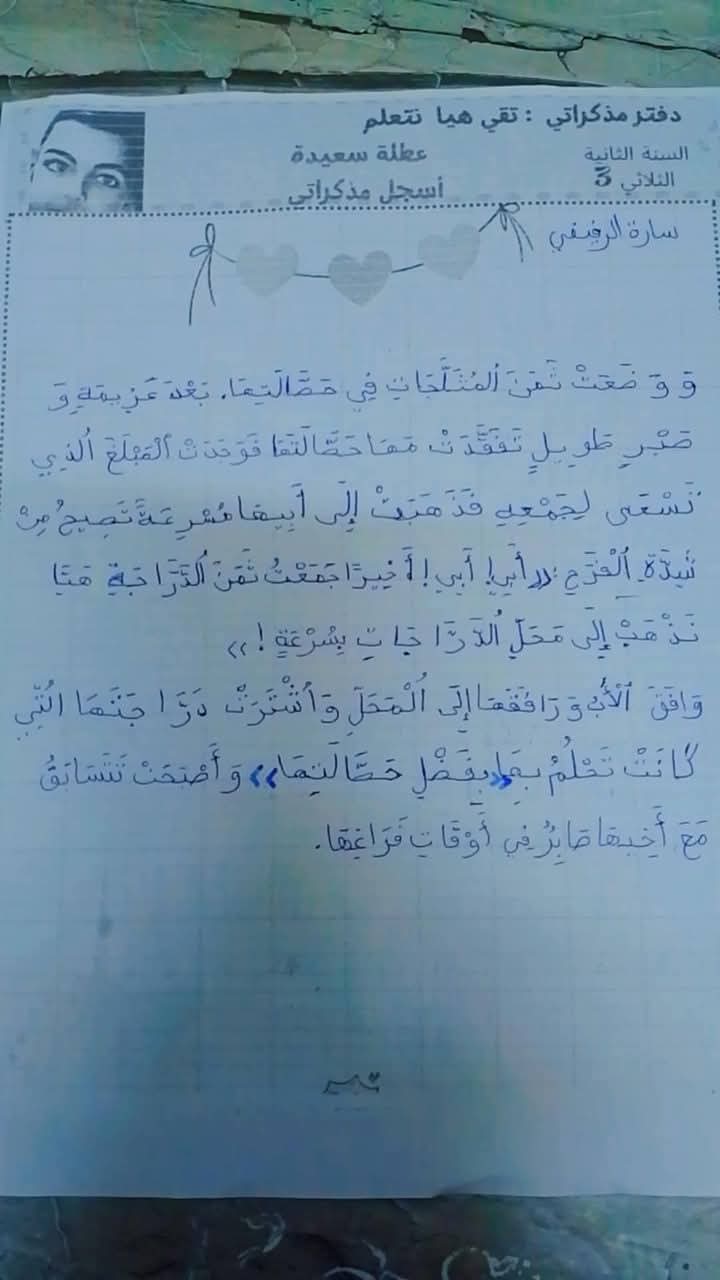 دفتر مذكراتي : تقي هيا نتعلم
السنة الثانية
عطلة سعيدة
الثلاثي 3
أسجل مذكراتي
سارة الرفيفي
وَ وَضَعَتْ ثَمَنَ المُثَلَّجَاتِ فِي حَصَّالَتِهَا. بَعْدَ عَزِيمَةٍ وَ
صَبْرٍ طَوِيلٍ تَفَقَّدَتْ مَهَا حَصَّالَتَهَا فَوَجَدَتْ الْمَبْلَغَ الَّذِي
تَسْعَى لِجَمْعِهِ فَذَهَبَتْ إِلَى أَبِيهَا مُسْرِعَةً تَصِيحُ مِنْ
شِدَّةِ الْفَرَحِ : «أَبِي! أَبِي! أَخِيرًا جَمَعْتُ ثَمَنَ الدَّرَّاجَةِ هَيَّا
نَذْهَبْ إِلَى مَحَلِّ الدَّرَّاجَاتِ بِسُرْعَةٍ ! »
وَافَقَ الْأَبُ وَ رَافَقَهَا إِلَى الْمَحَلِّ وَاشْتَرَتْ دَرَّاجَتَهَا الَّتِي
كَانَتْ تَحْلُمُ بِهَا «بِفَضْلِ حَصَّالَتِهَا» وَ أَصْبَحَتْ تَتَسَابَقُ
مَعَ أَخِيهَا صَابِرٌ فِي أَوْقَاتِ فَرَاغِهَا.